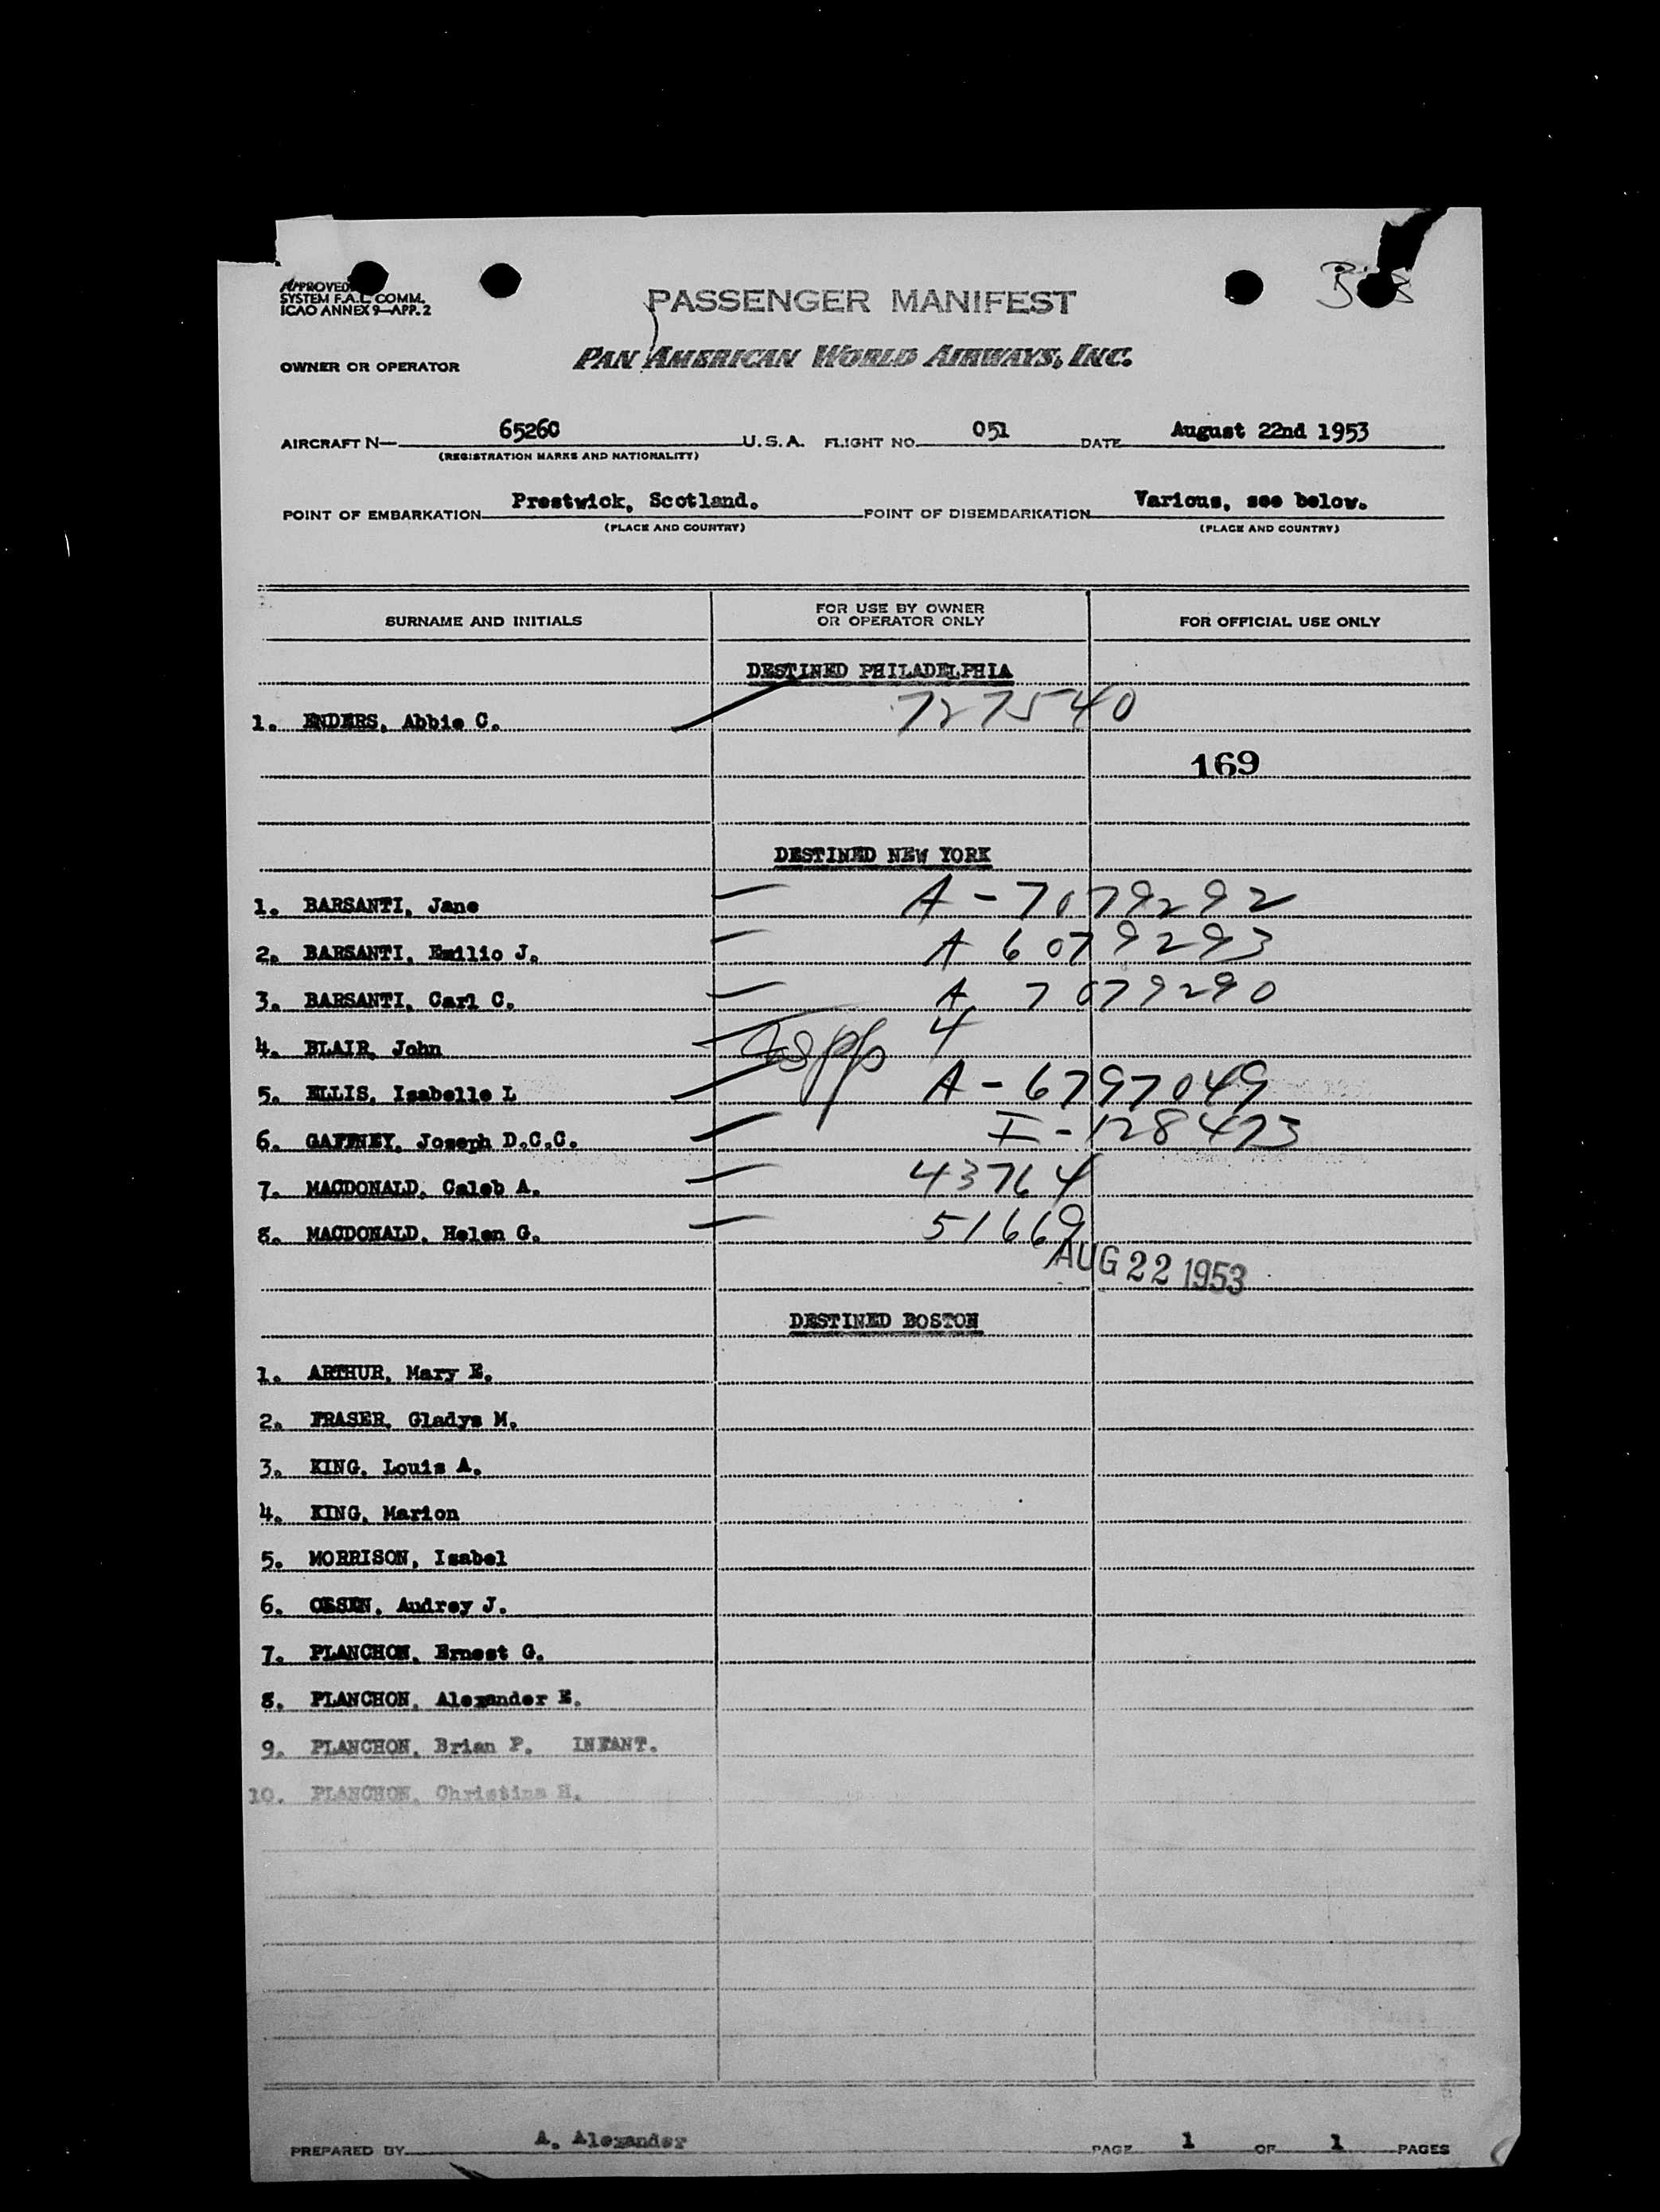 APPROVED
SYSTEM F.A.L. COMM.
ICAO ANNEX 9—APP. 2
PASSENGER MANIFEST
OWNER OR OPERATOR PAN AMERICAN WORLD AIRWAYS, INC.
AIRCRAFT N— 65260 U.S.A. FLIGHT NO. 051 DATE August 22nd 1953
(REGISTRATION MARKS AND NATIONALITY)
POINT OF EMBARKATION Prestwick, Scotland. POINT OF DISEMBARKATION Various, see below.
(PLACE AND COUNTRY) (PLACE AND COUNTRY)
SURNAME AND INITIALS FOR USE BY OWNER OR OPERATOR ONLY FOR OFFICIAL USE ONLY
DESTINED PHILADELPHIA
1. ENDERS, Abbie C. 7277540
169
DESTINED NEW YORK
1. BARSANTI, Jane A-7079292
2. BARSANTI, Emilio J. A 6079293
3. BARSANTI, Carl C. A 7079290
4. BLAIR, John 4
5. ELLIS, Isabelle L A-6797049
6. GAFFNEY, Joseph D.C.C. I-128473
7. MACDONALD, Caleb A. 43764
8. MACDONALD, Helen G. 51669
AUG 22 1953
DESTINED BOSTON
1. ARTHUR, Mary E.
2. FRASER, Gladys M.
3. KING, Louis A.
4. KING, Marion
5. MORRISON, Isabel
6. OLSEN, Audrey J.
7. PLANCHON, Ernest G.
8. PLANCHON, Alexander E.
9. PLANCHON, Brian P. INFANT.
10. PLANCHON, Christina H.
PREPARED BY A. Alexander PAGE 1 OF 1 PAGES